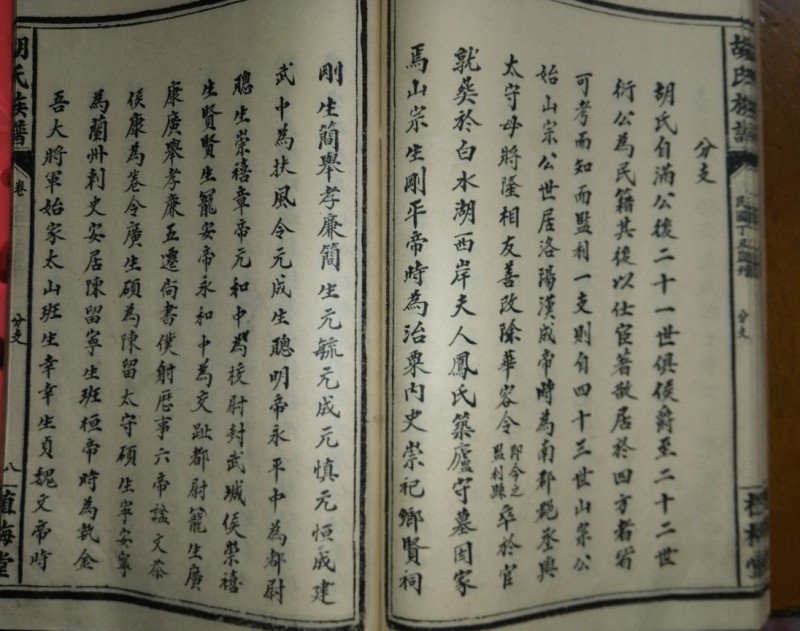 胡氏族譜
分支
分支
胡氏自滿公後二十一世俱侯爵至二十二世
衍公為民籍其後以仕宦著故居於四方者皆
可考而知而監利一支則自四十三世山宗公
始山宗公世居洛陽漢成帝時為南郡丞與
太守毋將隆相友善改除華容令即今之監利縣卒於官
就葬於白水湖西岸夫人鳳氏築廬守墓因家
焉山宗生剛平帝時為治粟內史崇祀鄉賢祠
剛生簡舉孝廉簡生元毓元成元慎元恒成建
武中為扶風令元成生聰明帝永平中為都尉
聰生崇禧章帝元和中為校尉封武城侯崇禧
生賢賢生寵安帝永和中為交趾都尉寵生廣
康廣舉孝廉五遷尚書僕射歷事六帝諡文恭
侯康為卷令廣生碩為陳留太守碩生寧安寧
為蘭州刺史安居陳留寧生班桓帝時為執金
吾大將軍始家太山班生幸幸生貞魏文帝時
胡氏族譜
卷
分支
八
植梅堂